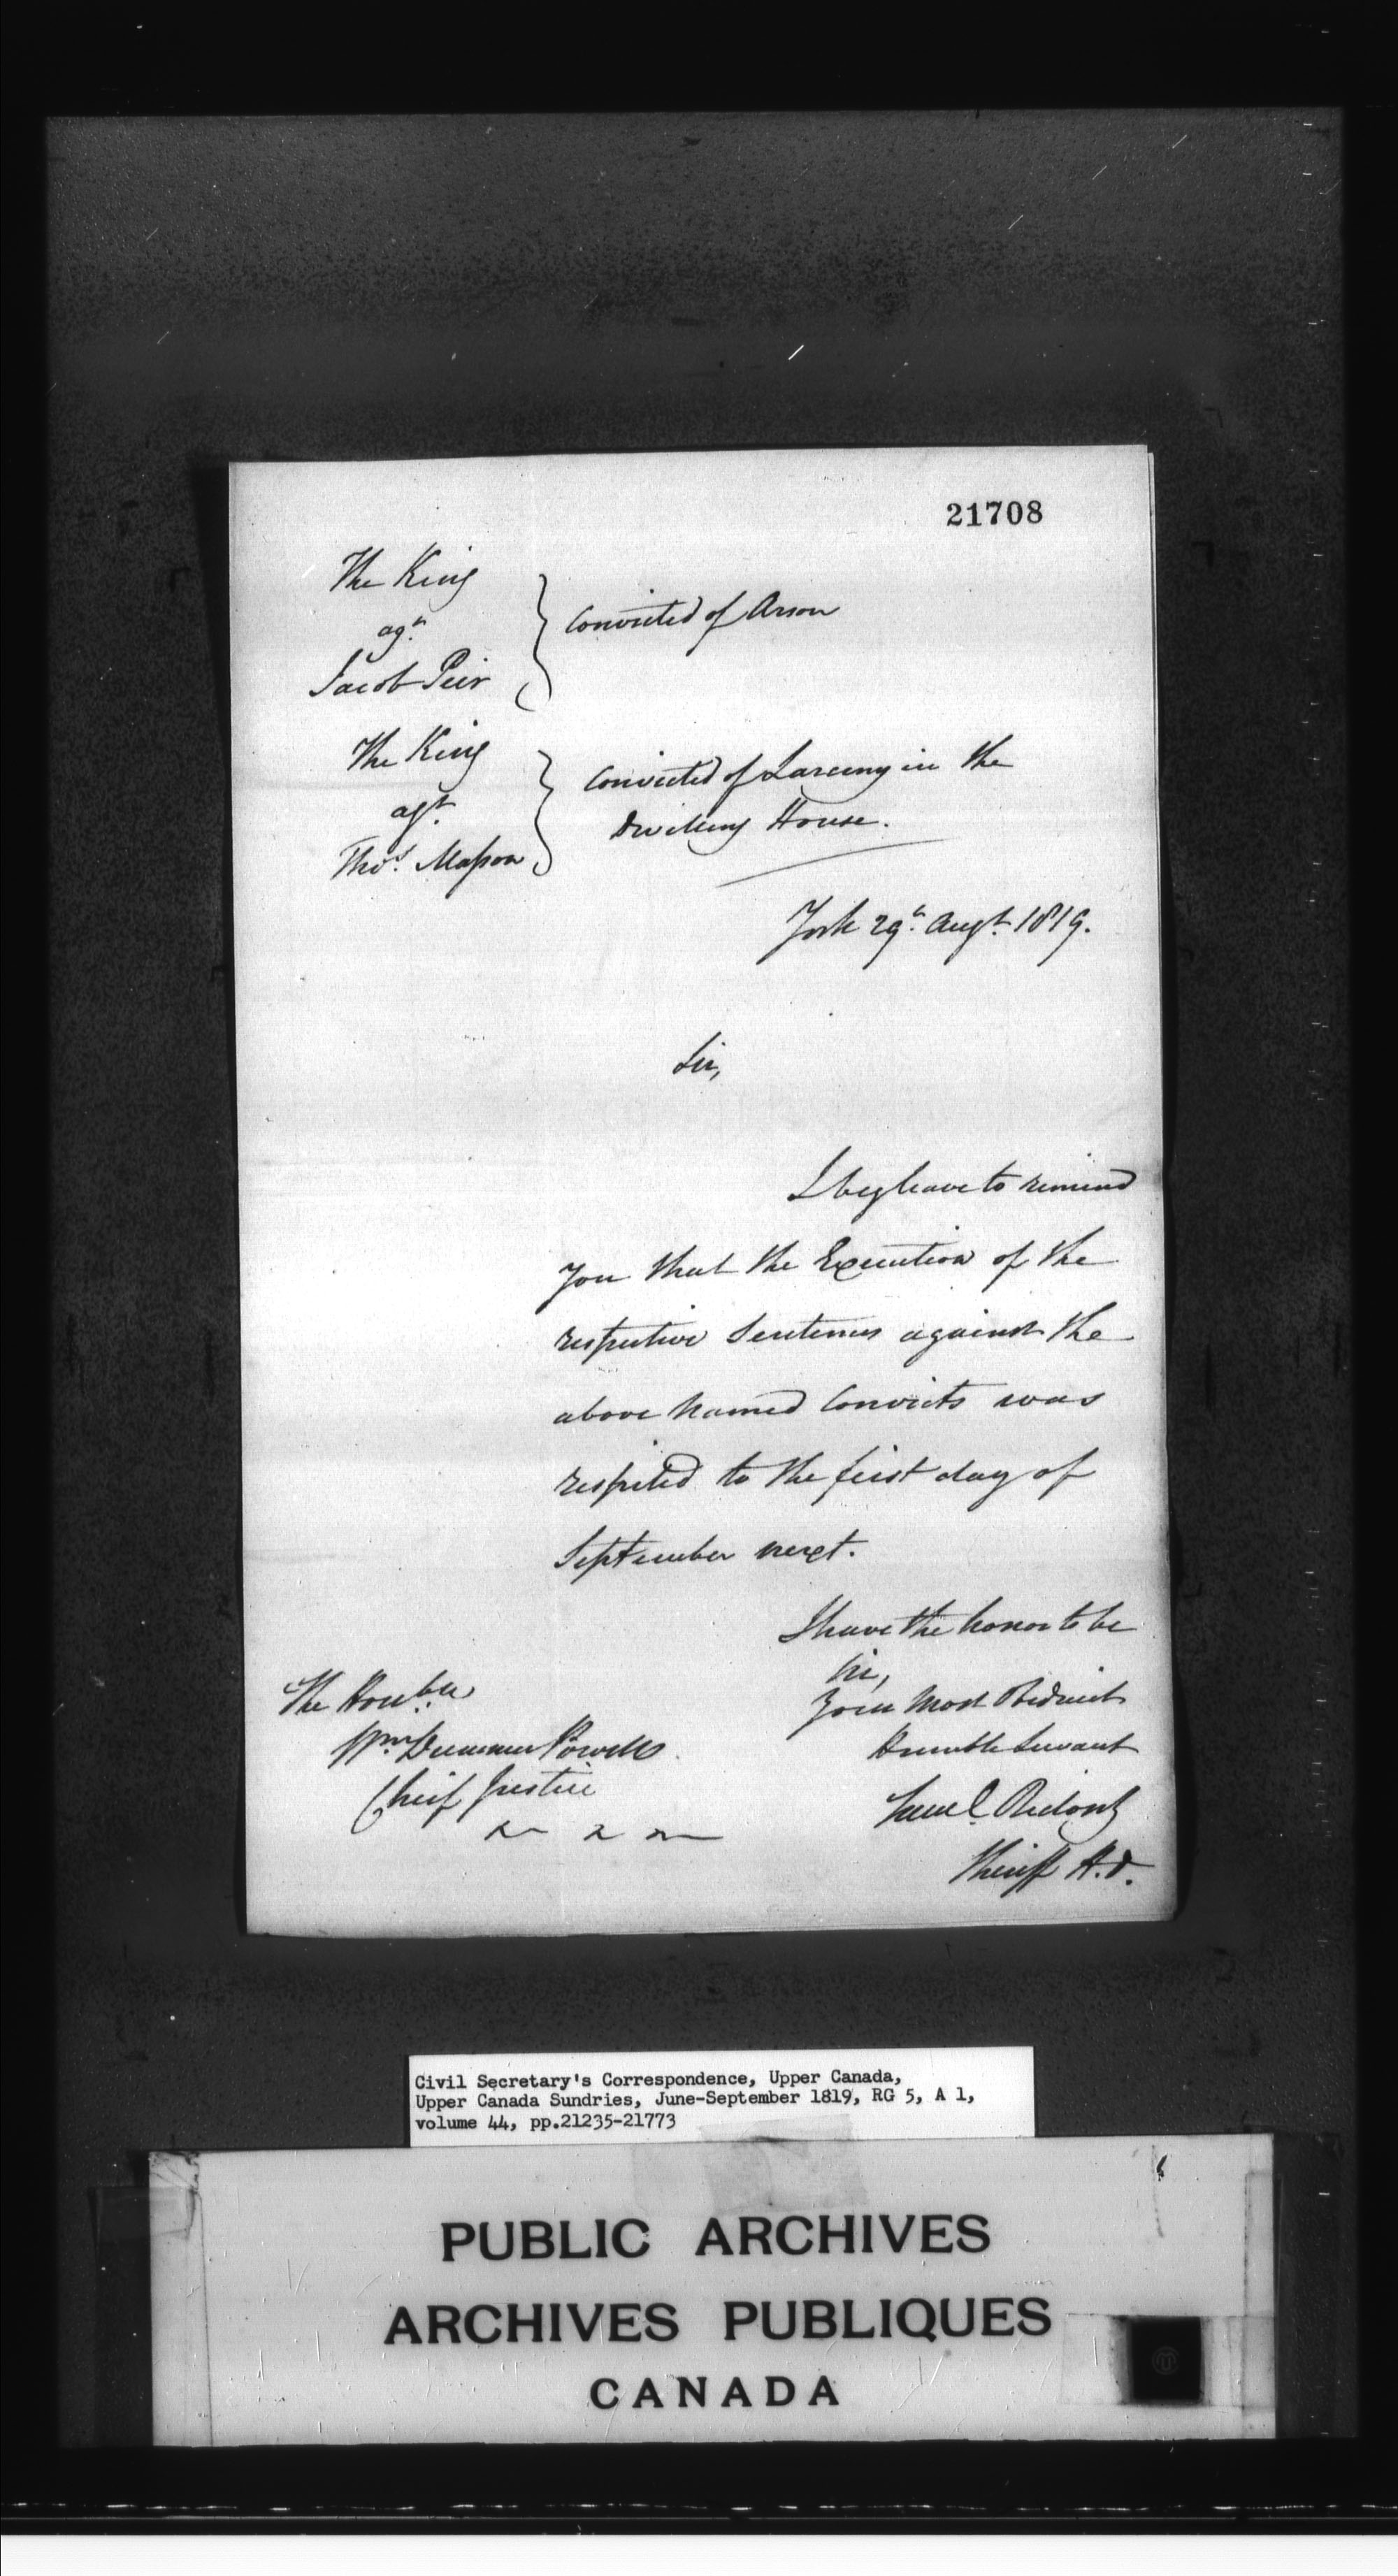 21708
The King
agt.
Jacob Peir
} Convicted of Arson
The King
agt.
Thos. Masson
} Convicted of Larceny in the
Dwelling House.
York 29th. Augt. 1819.
Sir,
I beg leave to remind
you that the Execution of the
respective Sentences against the
above named Convicts was
respited to the first day of
September next.
I have the honor to be
Sir,
Your Most Obedient
Humble Servant
Saml. Ridout
Sheriff H.D.
The Honble.
Wm. Dummer Powell
Chief Justice
Civil Secretary's Correspondence, Upper Canada,
Upper Canada Sundries, June-September 1819, RG 5, A 1,
volume 44, pp.21235-21773
PUBLIC ARCHIVES
ARCHIVES PUBLIQUES
CANADA